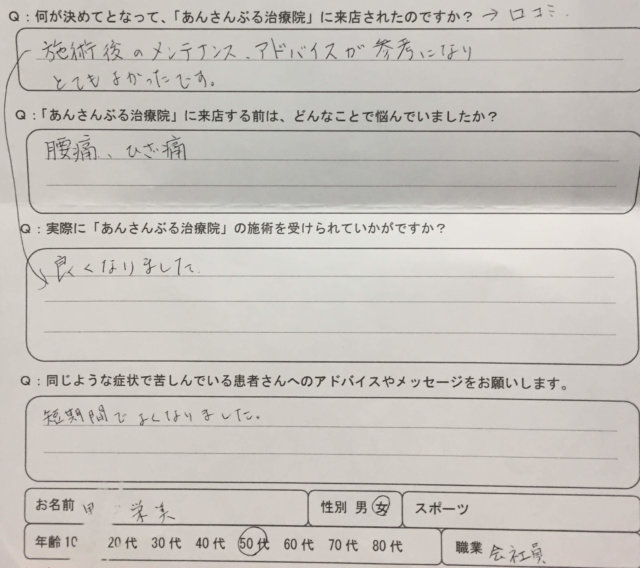 Q：何が決めてとなって、「あんさんぶる治療院」に来店されたのですか？→口コミ.
施術後のメンテナンス、アドバイスが参考になり
とてもよかったです。
Q：「あんさんぶる治療院」に来店する前は、どんなことで悩んでいましたか？
腰痛、ひざ痛
Q：実際に「あんさんぶる治療院」の施術を受けられていかがですか？
良くなりました
Q：同じような症状で苦しんでいる患者さんへのアドバイスやメッセージをお願いします。
短期間でよくなりました。
お名前 美 性別 男 女 スポーツ
年齢 10 20代 30代 40代 50代 60代 70代 80代 職業 会社員